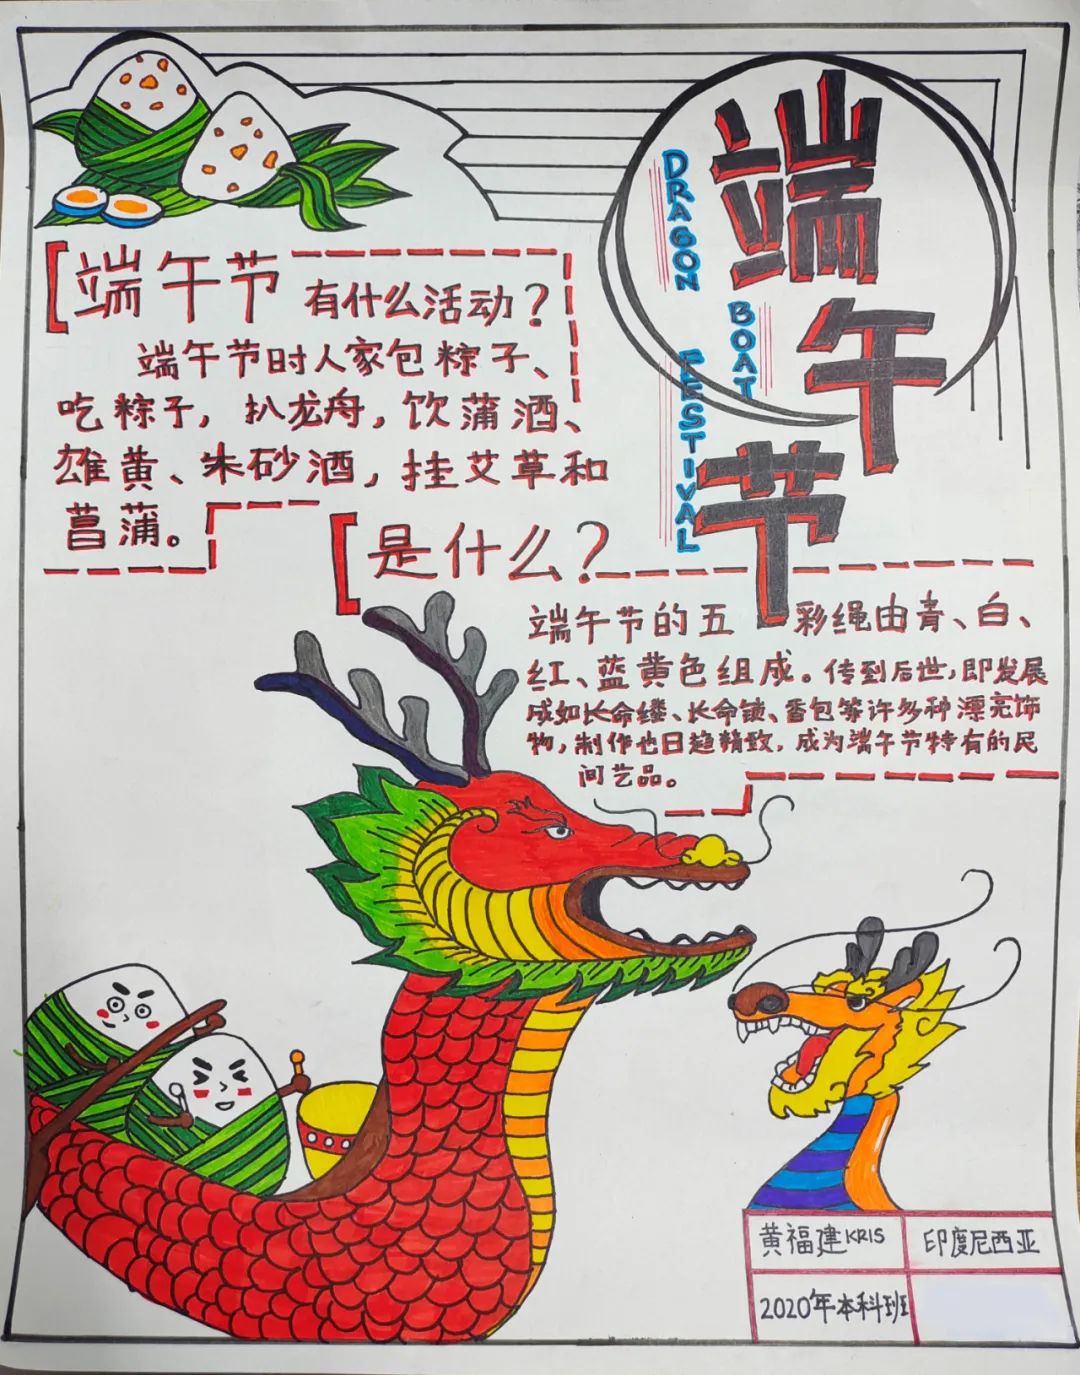 端午节
DRAGON
BOAT
FESTIVAL
端午节有什么活动？
端午节时人家包粽子、
吃粽子，扒龙舟，饮蒲酒、
雄黄、朱砂酒，挂艾草和
菖蒲。
是什么？
端午节的五彩绳由青、白、
红、蓝黄色组成。传到后世，即发展
成如长命缕、长命锁、香包等许多种漂亮饰
物，制作也日趋精致，成为端午节特有的民
间艺品。
黄福建KRIS
印度尼西亚
2020年本科班